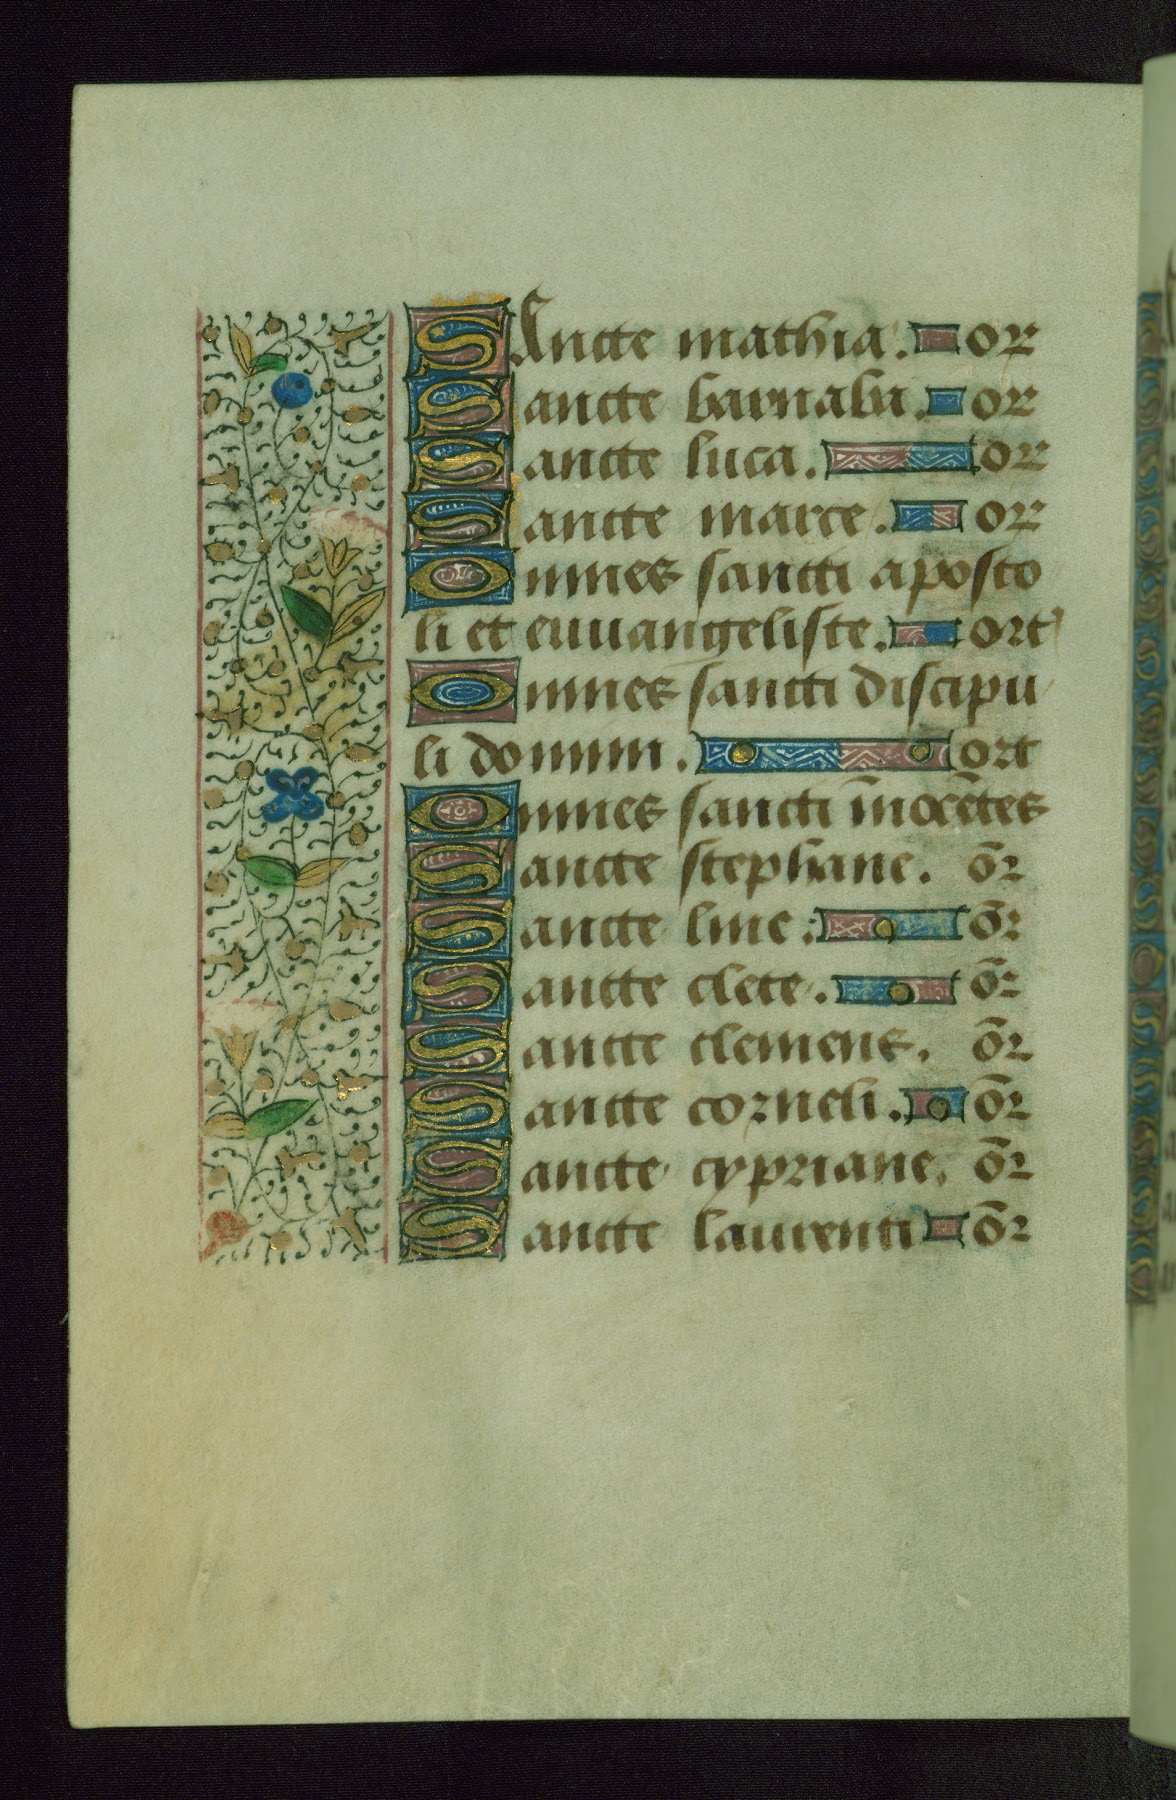 SAncte mathia. or
Sancte barnaba. or
Sancte luca. or
Sancte marce. or
Omnes sancti aposto
li et euuangeliste. ort
Omnes sancti discipu
li domini. ort
Omnes sancti īnocētes
Sancte stephane. o̅r
Sancte line. o̅r
Sancte clete. o̅r
Sancte clemens. o̅r
Sancte corneli. o̅r
Sancte cypriane. o̅r
Sancte laurenti o̅r